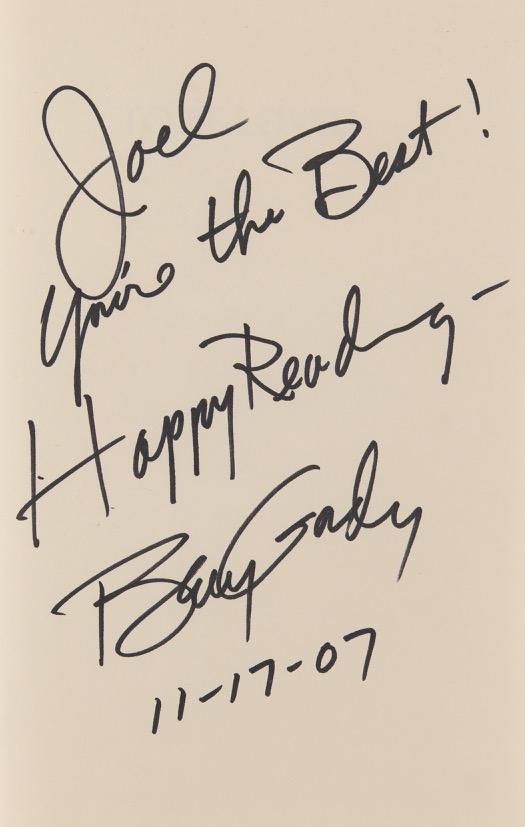 Joel
You're the Best!
Happy Reading-
Barry Gordy
11-17-07